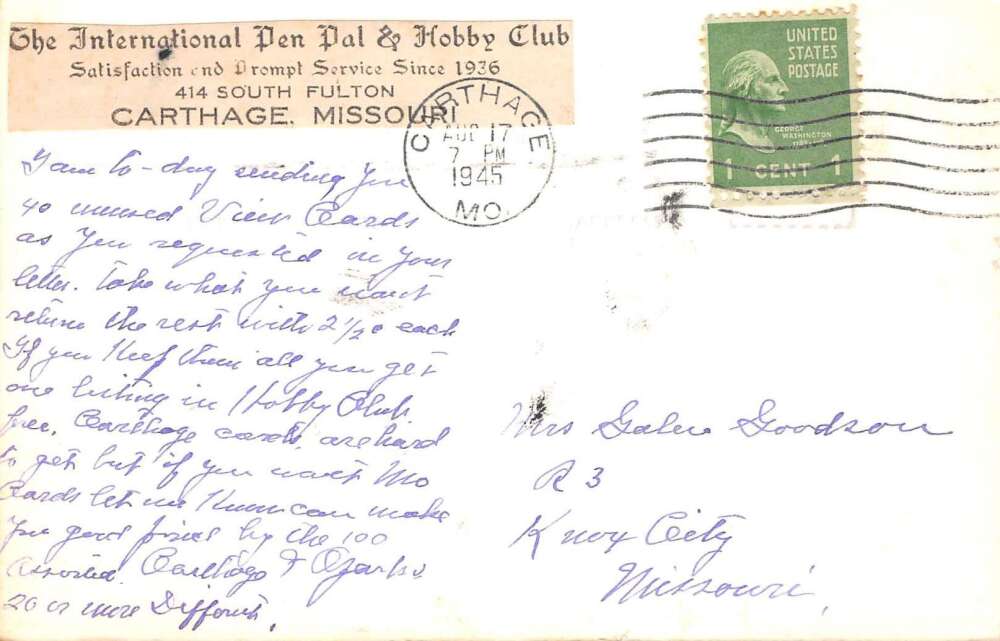 The International Pen Pal & Hobby Club
Satisfaction and Prompt Service Since 1936
414 SOUTH FULTON
CARTHAGE, MISSOURI
CARTHAGE
AUG 17
7 PM
1945
MO.
UNITED
STATES
POSTAGE
GEORGE
WASHINGTON
1 CENT 1
I am to-day sending you
40 unused View Cards
as you requested in your
letter. Take what you want
return the rest with 2 1/2¢ each
If you Keep them all you get
one listing in Hobby Club
free. Carthage cards are hard
to get but if you want Mo
Cards let me Know can make
you good prices by the 100
assorted. Carthage & Ozarks
20 or more Different.
Mrs Galen Goodson
R 3
Knox City
Missouri,